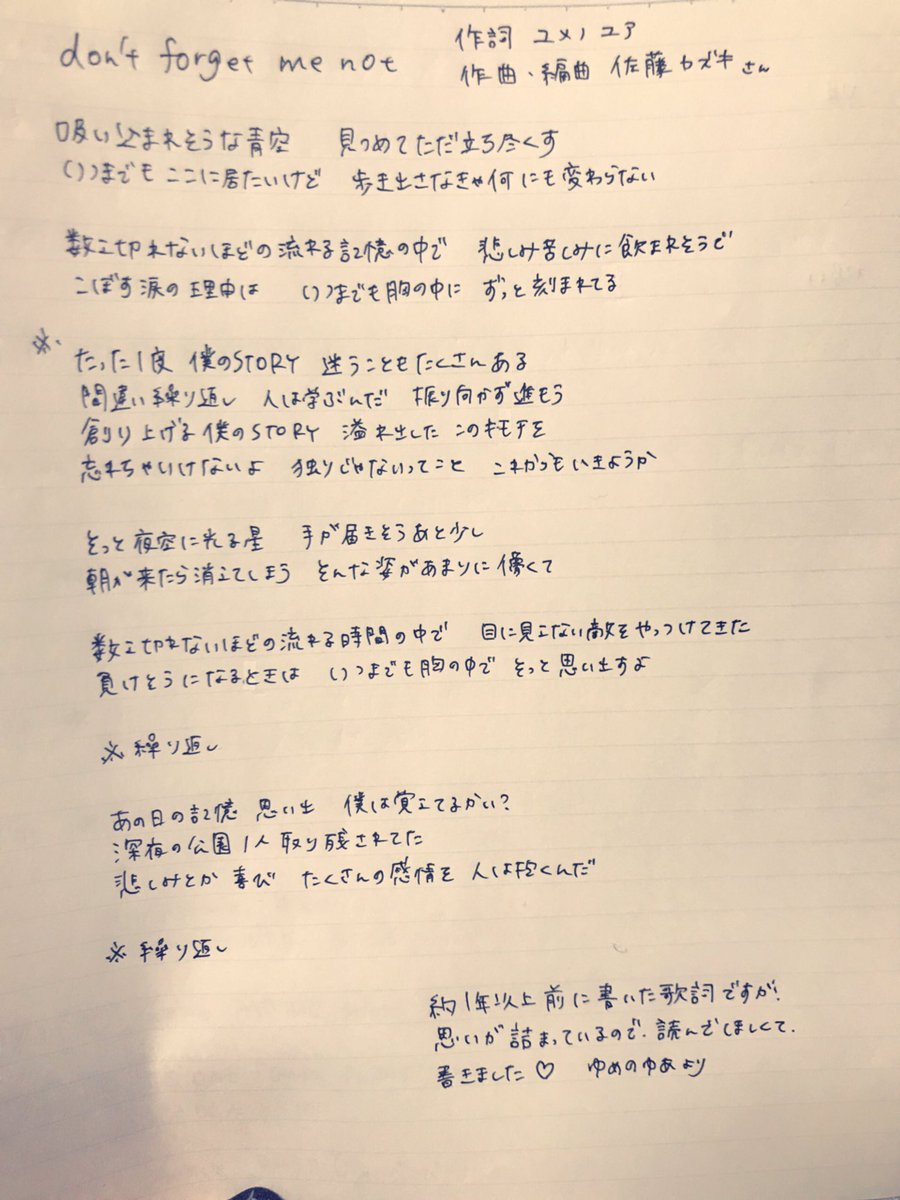 don't forget me not
作詞 ユメノユア
作曲・編曲 佐藤カズキさん
吸い込まれそうな青空 見つめてただ立ち尽くす
いつまでもここに居たいけど 歩き出さなきゃ何にも変わらない
数え切れないほどの流れる記憶の中で 悲しみ苦しみに飲まれそうで
こぼす涙の理由は いつまでも胸の中に ずっと刻まれてる
※ たった1度 僕のSTORY 迷うこともたくさんある
間違い繰り返し 人は学ぶんだ 振り向かず進もう
創り上げる僕のSTORY 溢れ出した このキモチを
忘れちゃいけないよ 独りじゃないってこと これからもいきようか
そっと夜空に光る星 手が届きそうあと少し
朝が来たら消えてしまう そんな姿があまりに儚くて
数え切れないほどの流れる時間の中で 目に見えない敵をやっつけてきた
負けそうになるときは いつまでも胸の中で そっと思い出すよ
※ 繰り返し
あの日の記憶 思い出 僕は覚えてるかい?
深夜の公園1人 取り残されてた
悲しみとか 喜び たくさんの感情を 人は抱くんだ
※ 繰り返し
約1年以上前に書いた歌詞ですが、
思いが詰まっているので、読んでほしくて、
書きました♡ ゆめのゆあより